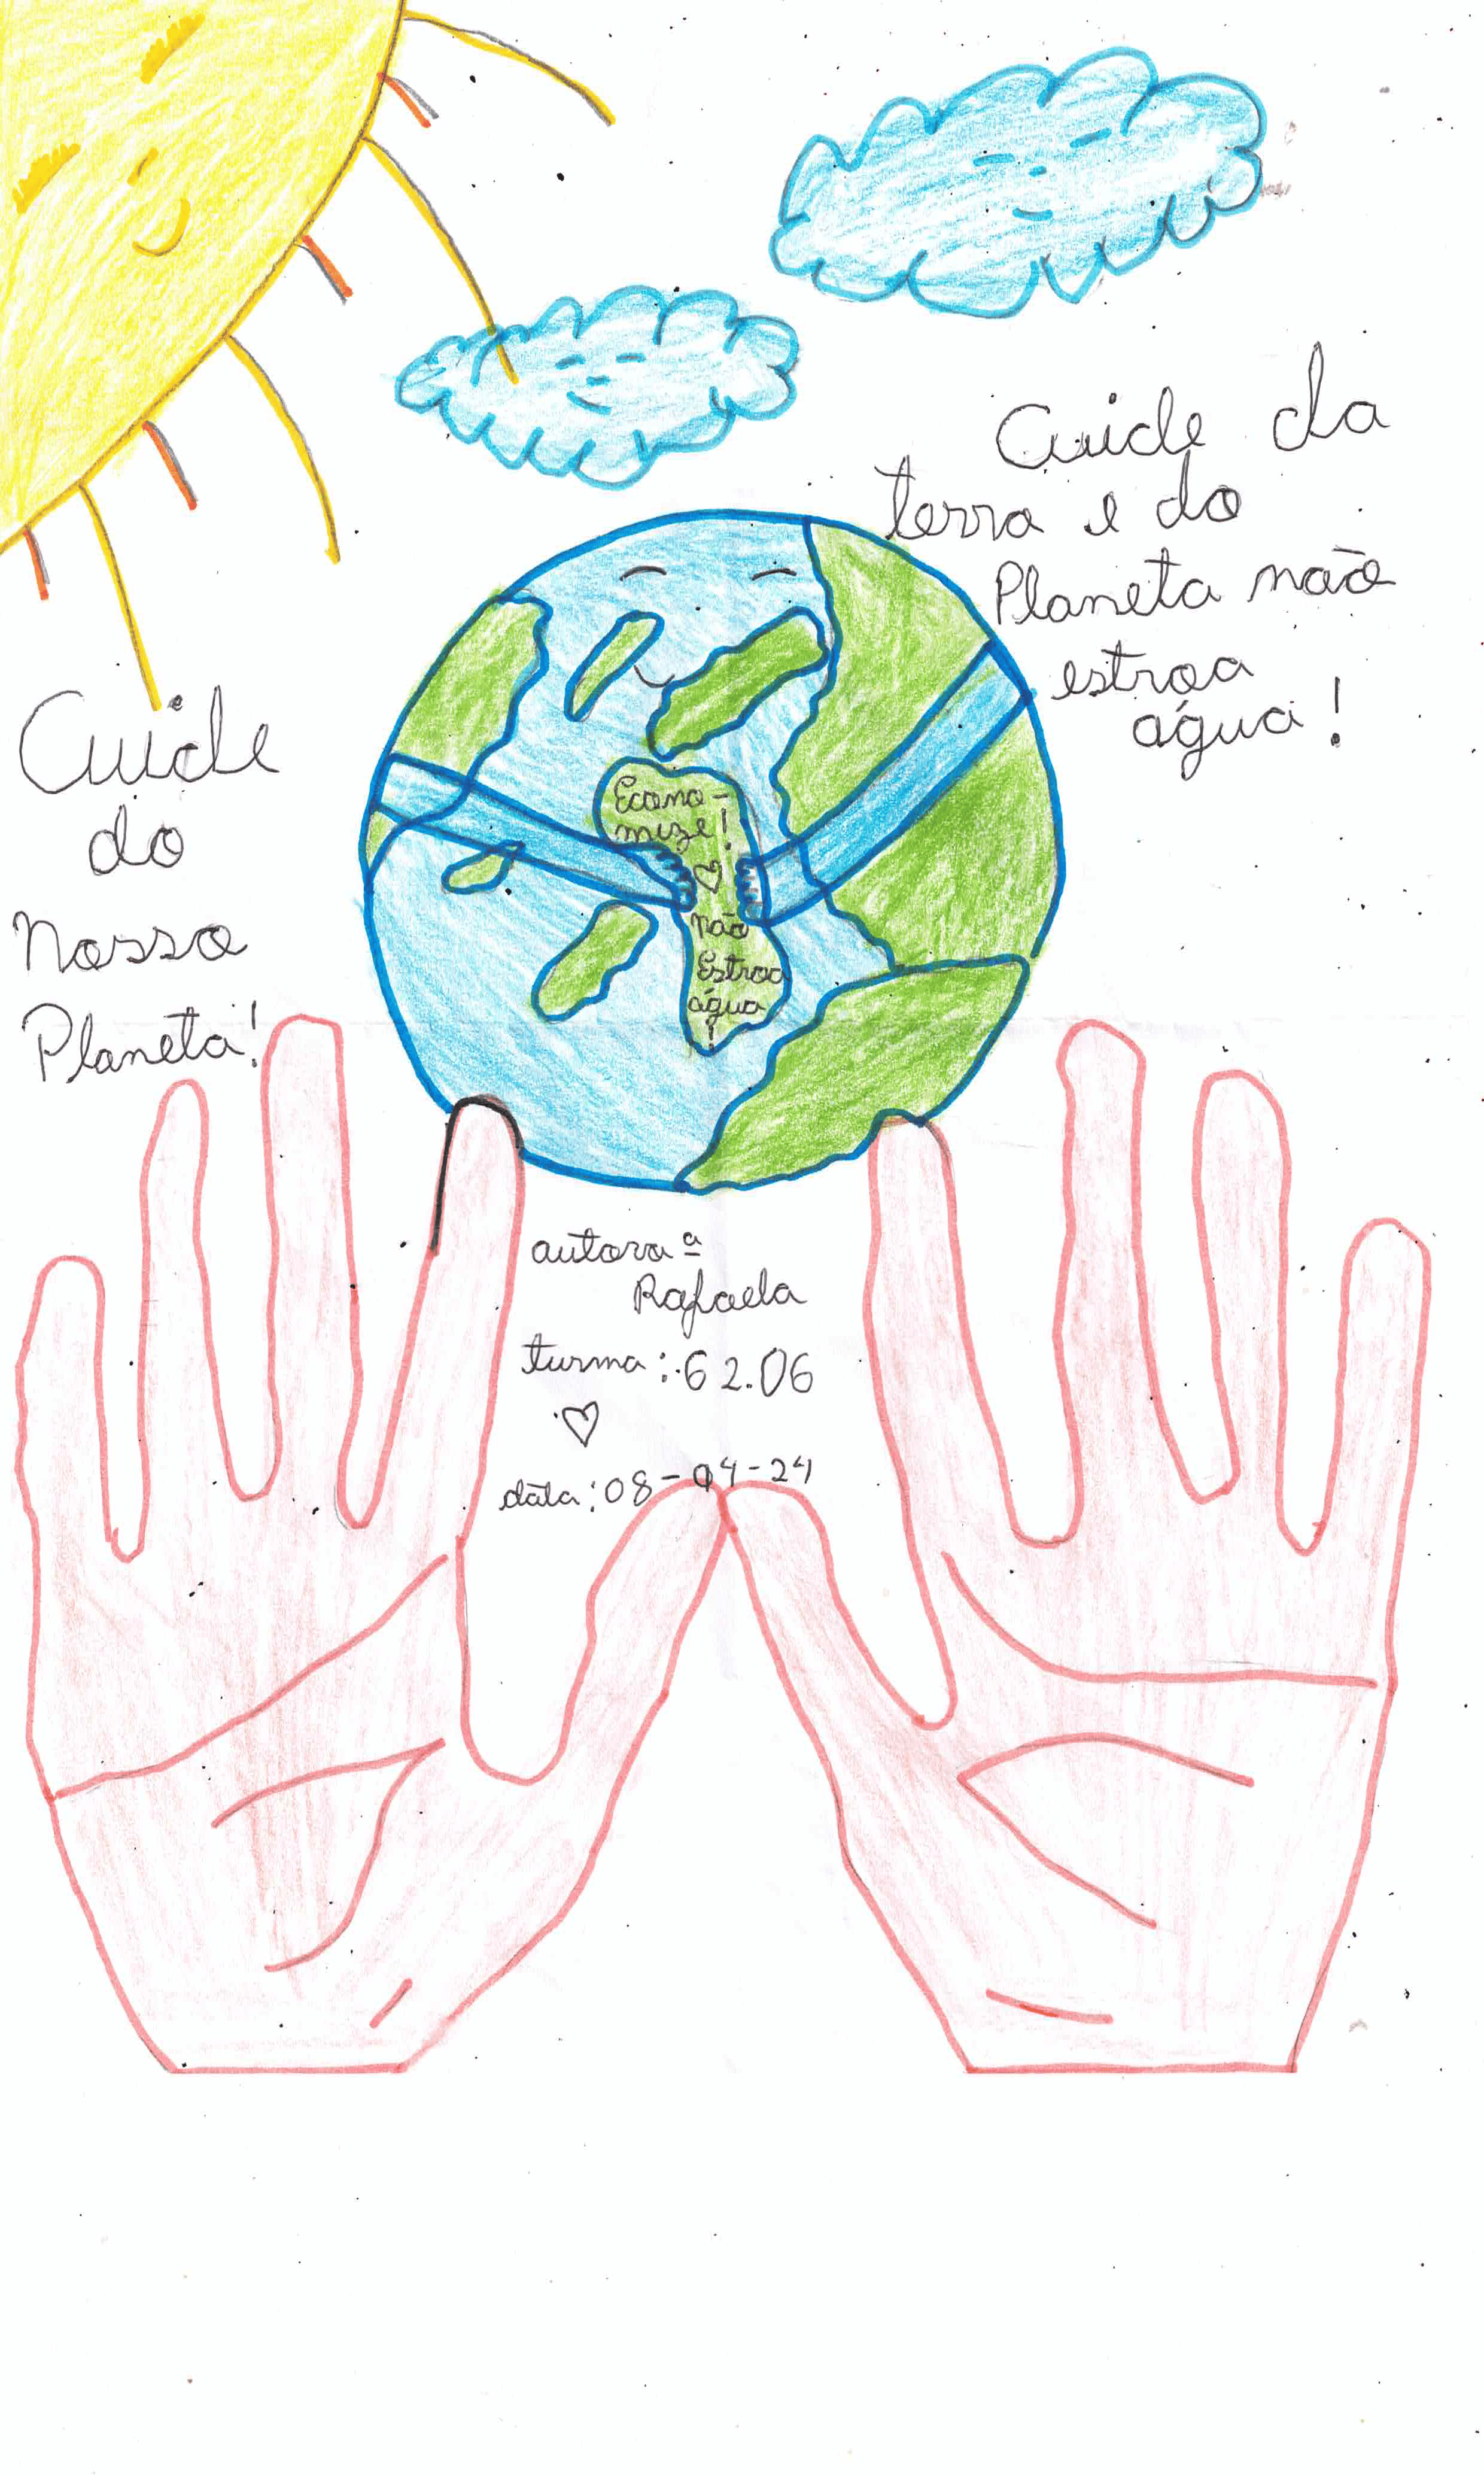 Cuide da
terra e do
Planeta não
estroa
água!
Cuide
do
Nosso
Planeta!
Econo-
mize!
não
Estroa
água
!
autora ª
Rafaela
turma: 62.06
data: 08-04-24